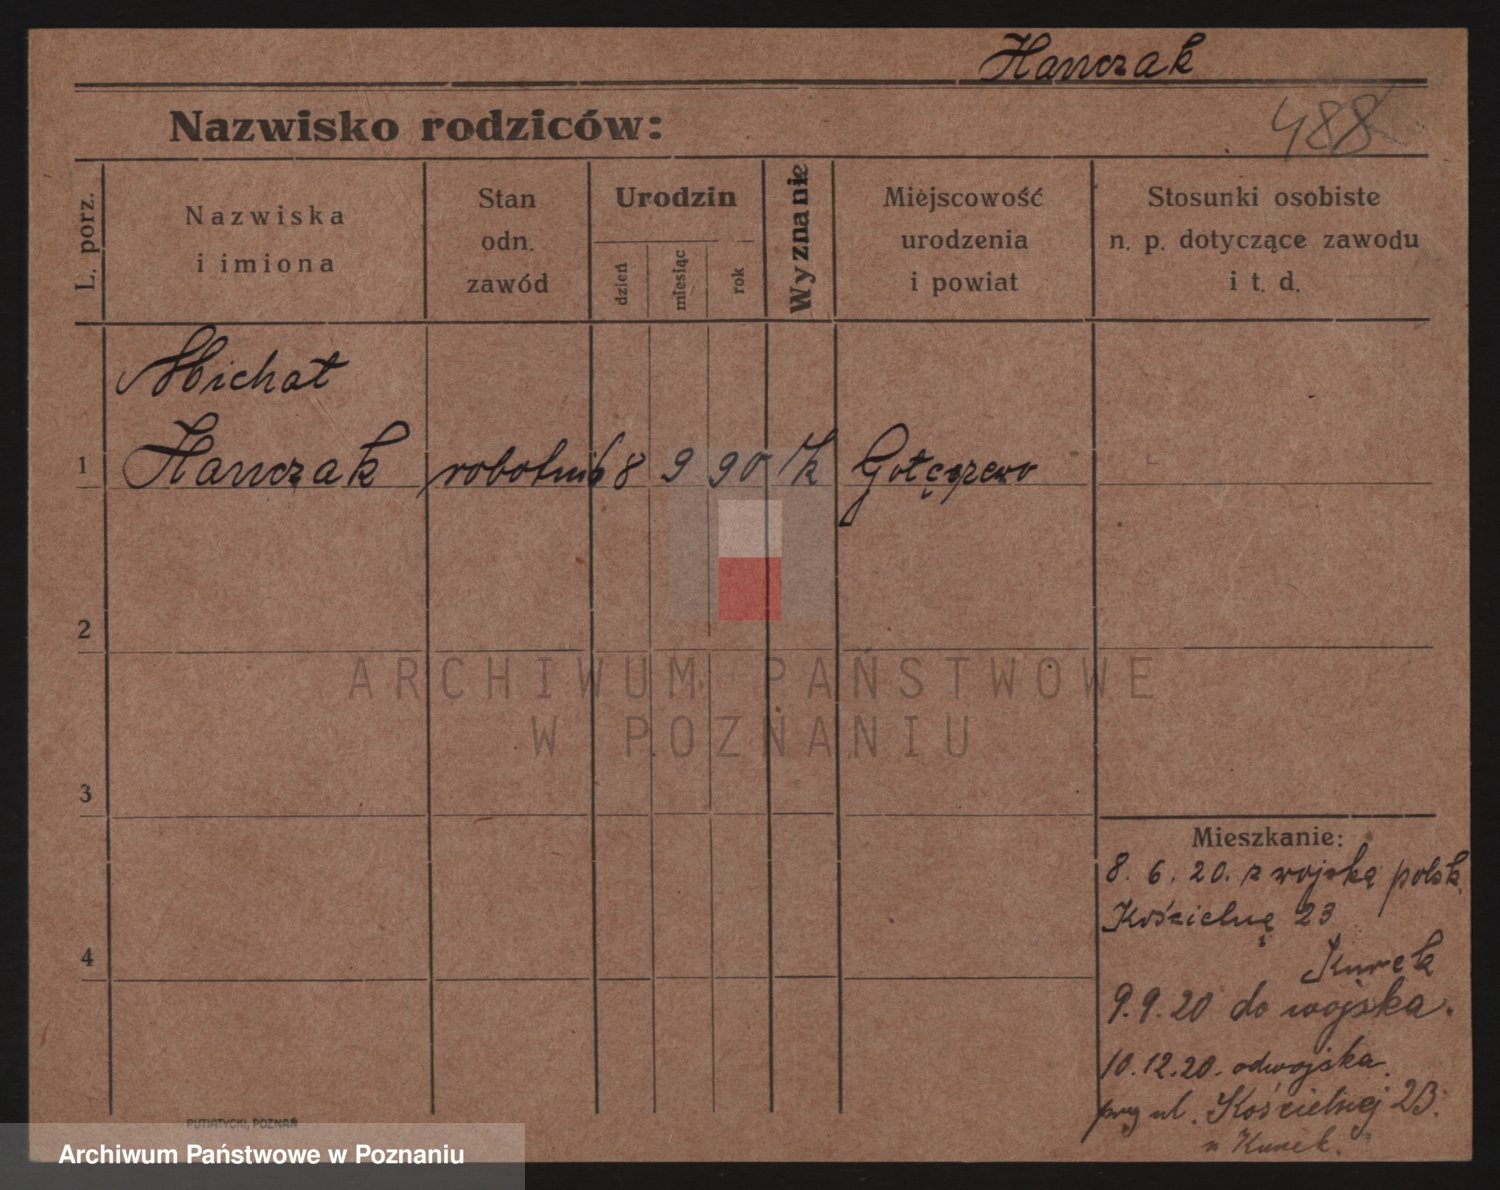 Hanczak
488
Nazwisko rodziców:
L. porz.
Nazwiska
i imiona
Stan
odn.
zawód
Urodzin
dzień
miesiąc
rok
Wyznanie
Miejscowość
urodzenia
i powiat
Stosunki osobiste
n. p. dotyczące zawodu
i t. d.
Michał
1 Hanczak robotnik 8 9 90 k Gołęczewo
2
3
4
Mieszkanie:
8. 6. 20. z wojska polsk.
Kościelną 23
Kurek
9.9.20 do wojska.
10.12.20. od wojska.
przy ul. Kościelnej 23.
n Kurek.
PUTIATYCKI, POZNAŃ
ARCHIWUM PAŃSTWOWE
W POZNANIU
Archiwum Państwowe w Poznaniu